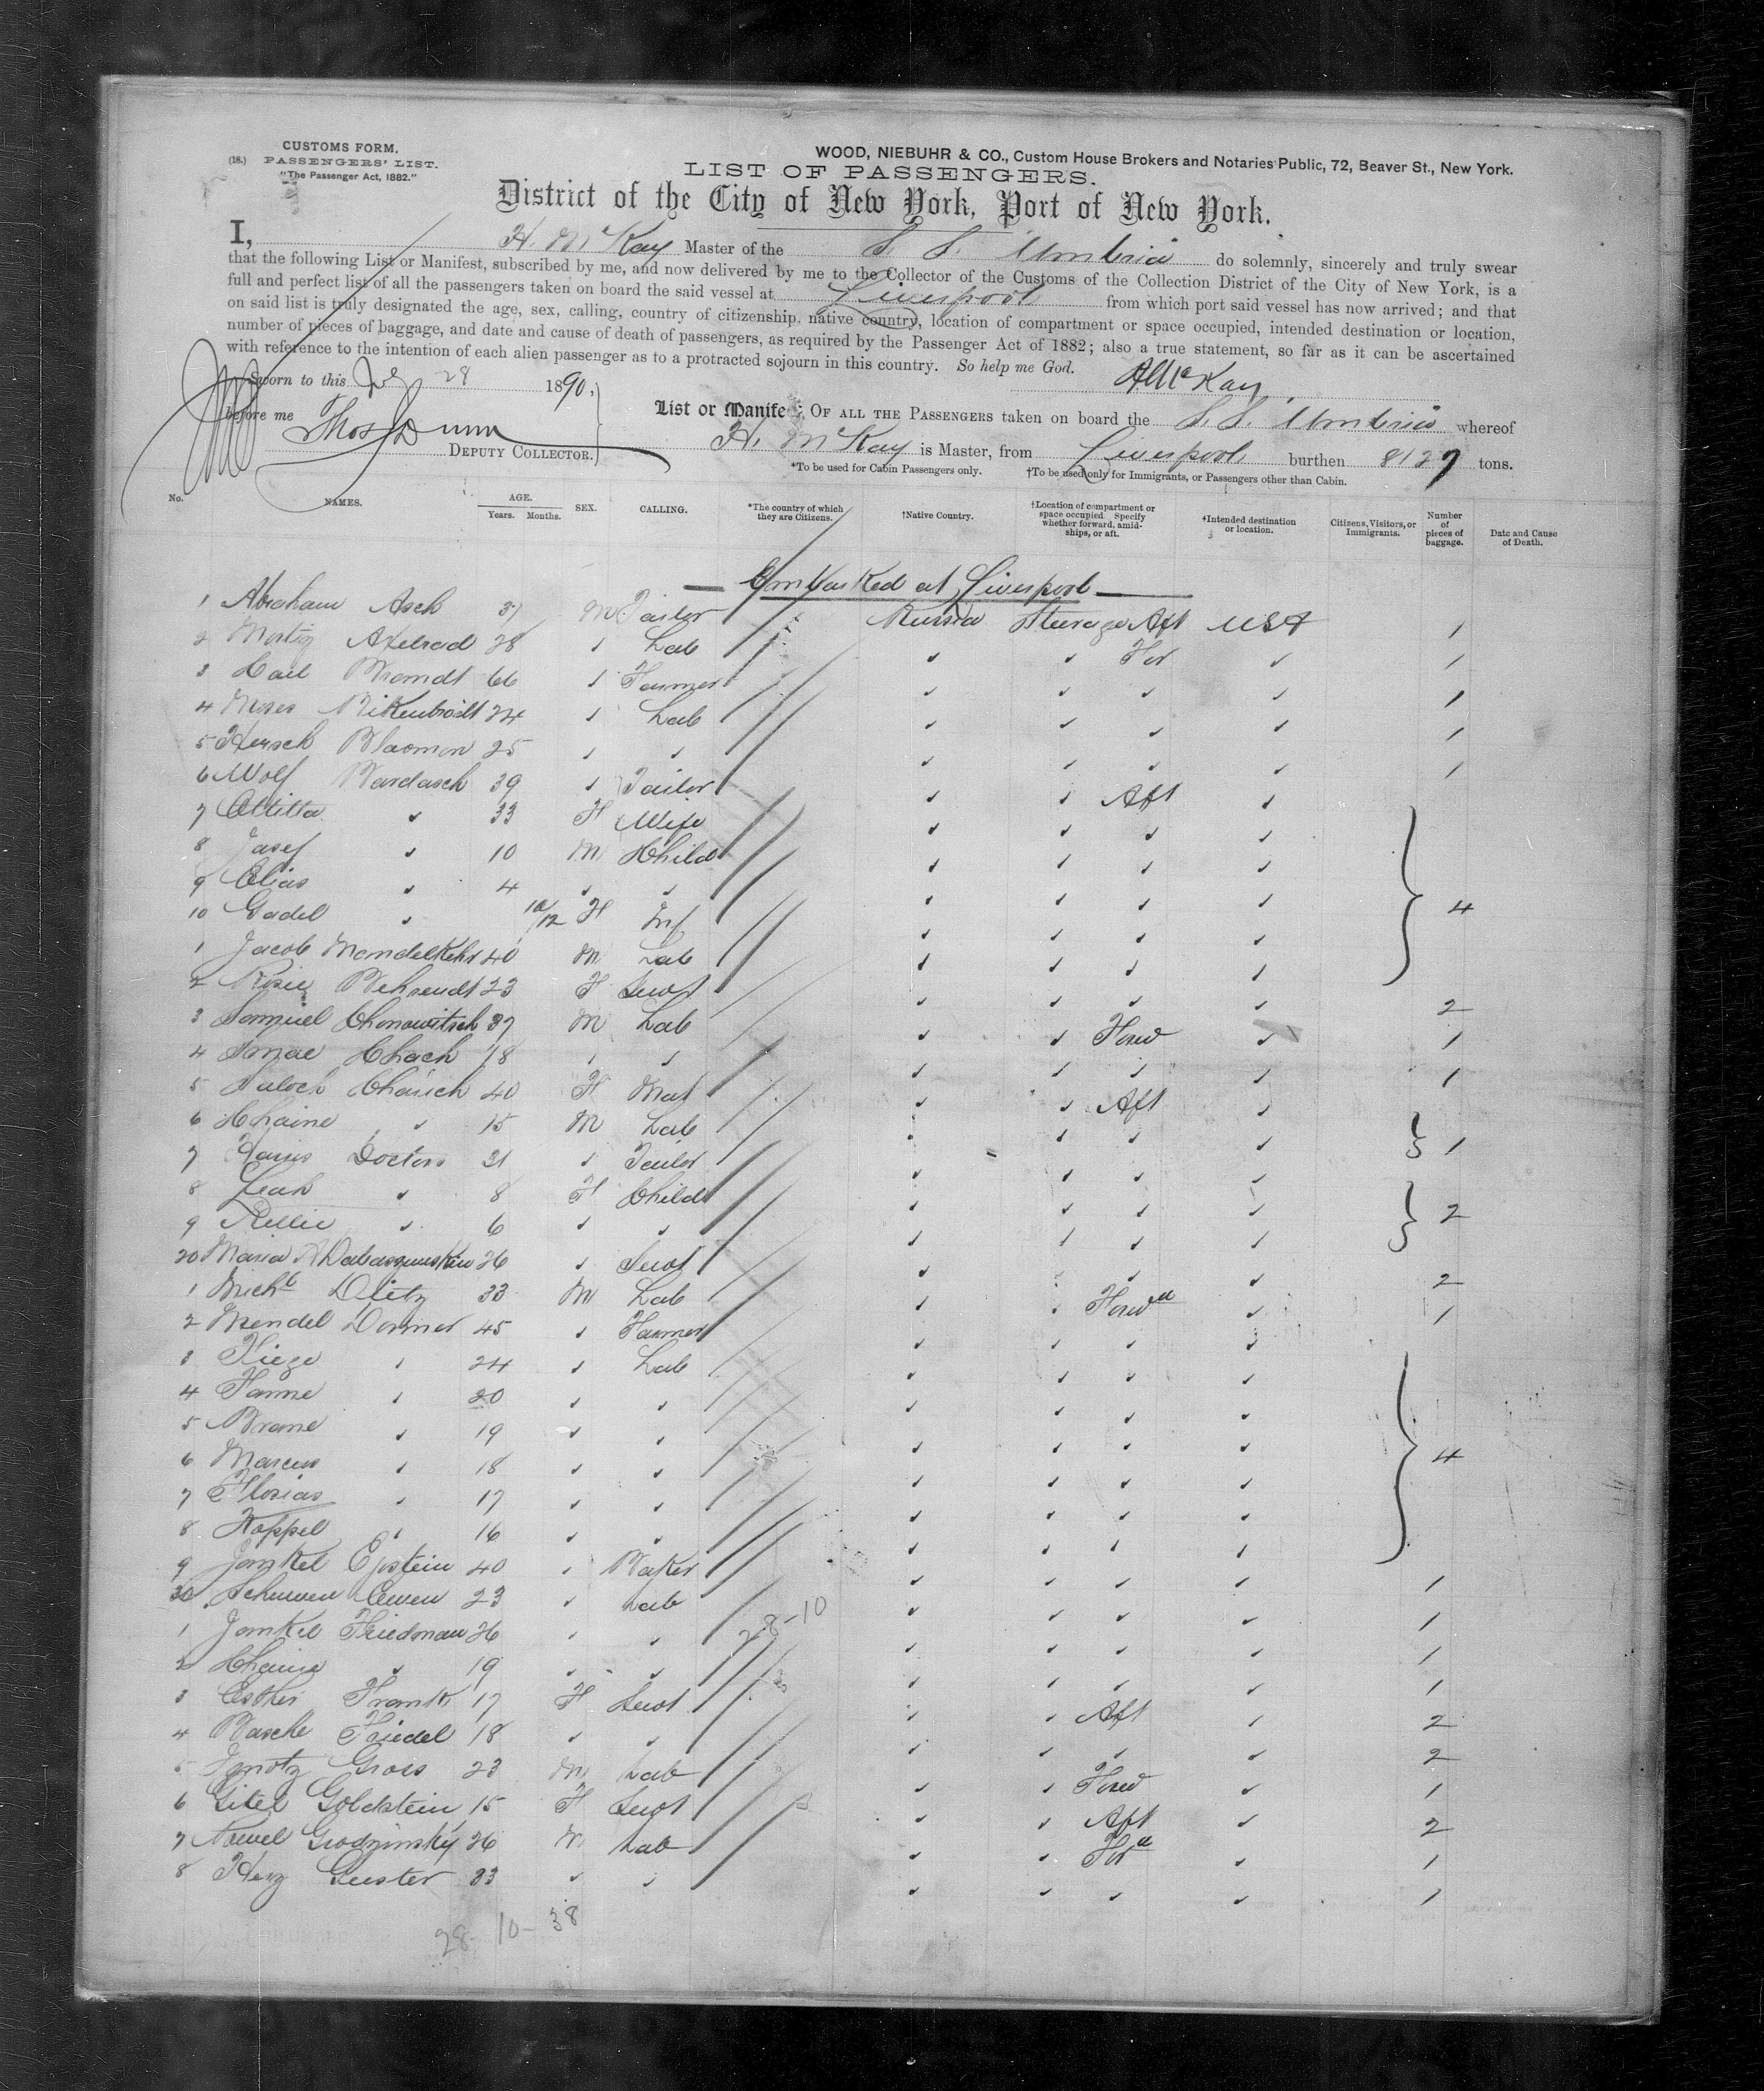 CUSTOMS FORM.
(18.) PASSENGERS' LIST.
"The Passenger Act, 1882."
WOOD, NIEBUHR & CO., Custom House Brokers and Notaries Public, 72, Beaver St., New York.
LIST OF PASSENGERS.
District of the City of New York, Port of New York.
I, H. McKay Master of the S. S. Umbria do solemnly, sincerely and truly swear
that the following List or Manifest, subscribed by me, and now delivered by me to the Collector of the Customs of the Collection District of the City of New York, is a
full and perfect list of all the passengers taken on board the said vessel at Liverpool from which port said vessel has now arrived; and that
on said list is truly designated the age, sex, calling, country of citizenship, native country, location of compartment or space occupied, intended destination or location,
number of pieces of baggage, and date and cause of death of passengers, as required by the Passenger Act of 1882; also a true statement, so far as it can be ascertained
with reference to the intention of each alien passenger as to a protracted sojourn in this country. So help me God.
Sworn to this 28 1890,
H McKay
before me Thos Dunn
DEPUTY COLLECTOR.
List or Manifest OF ALL THE PASSENGERS taken on board the S.S. Umbria whereof
H. McKay is Master, from Liverpool burthen 8127 tons.
*To be used for Cabin Passengers only. †To be used only for Immigrants, or Passengers other than Cabin.
No. NAMES. AGE. Years. Months. SEX. CALLING. *The country of which they are Citizens. †Native Country. †Location of compartment or space occupied. Specify whether forward, amidships, or aft. †Intended destination or location. Citizens, Visitors, or Immigrants. Number of pieces of baggage. Date and Cause of Death.
Embarked at Liverpool
1 Abraham Asch 37 M Tailor Russia Steerage Aft USA 1
2 Axelrad 28 Lab For 1
3 Brandt 66 Farmer 1
4 Moses 24 Lab 1
5 Hersch 25 1
6 Wolf Bardasch 39 Tailor Aft
7 33 F Wife
8 Josef 10 M Child
9 Elias 4 4
10 Gadel 10/12 F Inf
1 Jacob Mandelkehr 40 M Lab
2 Rosie Behrendt 23 F Servt 2
3 Samuel Chonowitsch 37 M Lab Forw 1
4 Chach 18 1
5 40 F Mat Aft
6 Chaine 15 M Lab 1
7 Doctors 31 Tailor
8 Leah 8 F Child 2
9 6
20 Maria 26 Servt 2
1 33 M Lab Forwd 1
2 Mendel Dormer 45 Farmer
3 24 Lab
4 20
5 19
6 Marcus 18 4
7 17
8 Koppel 16
9 Jankel Epstein 40 Baker 1
30 23 Lab 1
1 Jankel Friedman 26 1
2 19 1
3 Esther Frank 17 F Servt Aft 2
4 Basche Friedel 18 2
5 Ignatz Gross 23 M Lab Forw 1
6 Gitel Goldstein 15 F Servt Aft 2
7 Grodzinsky 26 M Lab Ford 1
8 Herz 33 1
28-10
28 10- 38